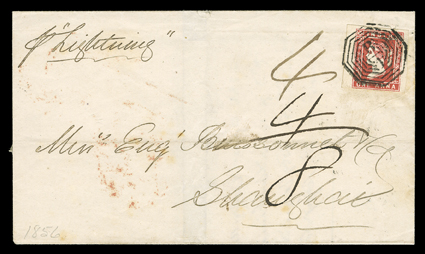 p "Lightning"
4
4
8
Mess Eug Buissonnet & Co
Shanghai
1856